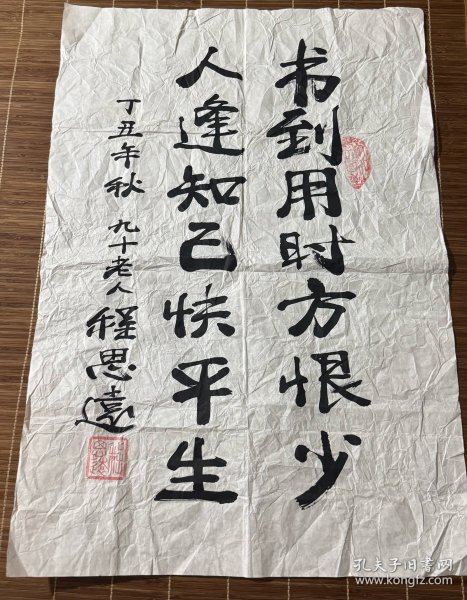 书到用时方恨少
人逢知己快平生
丁丑年秋 九十老人 程思远
孔夫子旧书网
www.kongfz.com